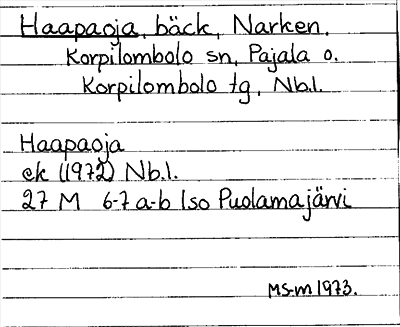 Haapaoja, bäck, Narken.
Korpilombolo sn, Pajala o.
Korpilombolo tg, Nb.l.
Haapaoja
ek (1972) Nb.l.
27 M 6-7 a-b Iso Puolamajärvi
MS-m 1973.